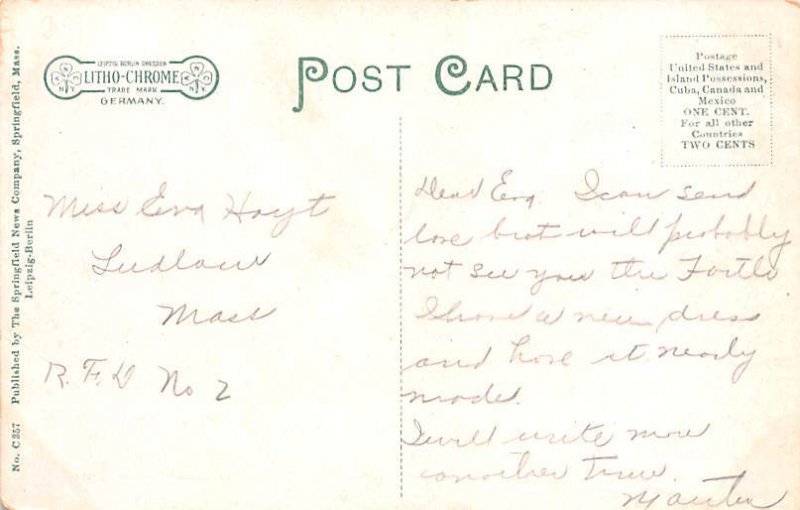 LEIPZIG BERLIN DRESDEN
LITHO-CHROME
TRADE MARK
GERMANY.
POST CARD
Postage
United States and
Island Possessions,
Cuba, Canada and
Mexico
ONE CENT.
For all other
Countries
TWO CENTS
No. C357 Published by The Springfield News Company, Springfield, Mass.
Leipzig-Berlin
Miss Eva Hoyt
Ludlow
Mass
R. F. D No 2
Dear Eva. I can send
love but will probably
not see you the
I have a new dress
and have it nearly
made.
I will write more
another time.